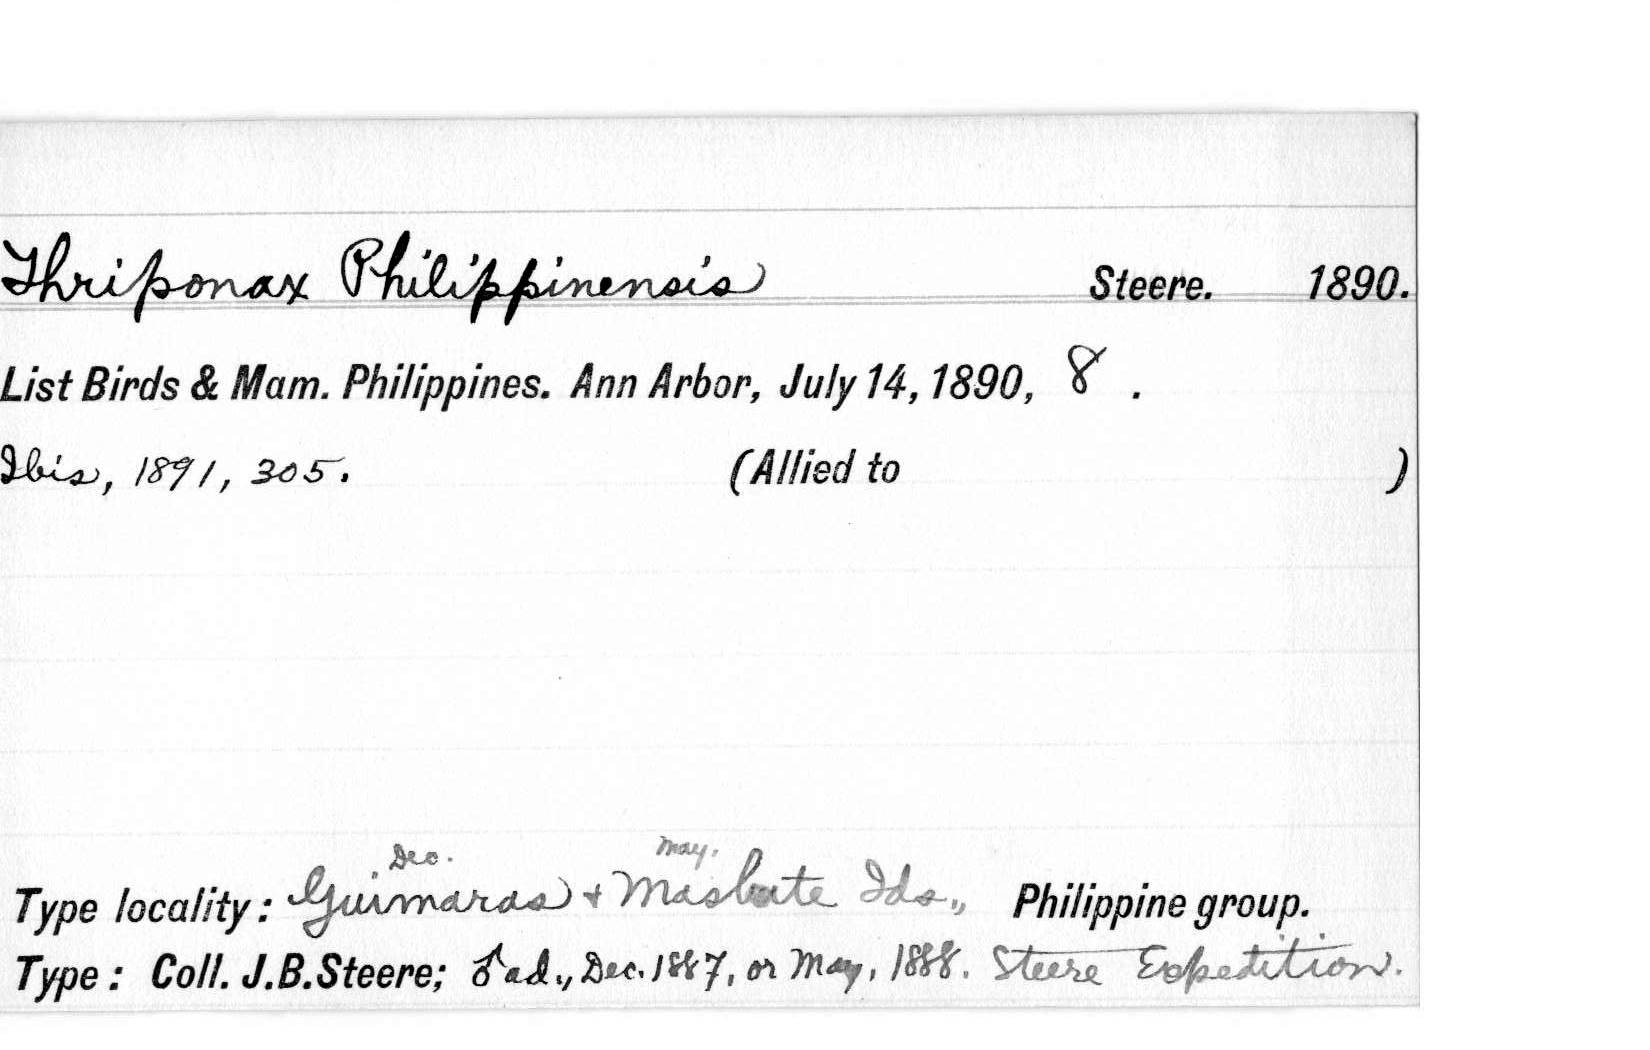 Thriponax Philippinensis Steere. 1890.
List Birds & Mam. Philippines. Ann Arbor, July 14, 1890, 8.
Ibis, 1891, 305. (Allied to )
Dec. May.
Type locality: Guimaras + Masbate Ids., Philippine group.
Type: Coll. J.B.Steere; ♂ ad., Dec. 1887, or May, 1888. Steere Expedition.